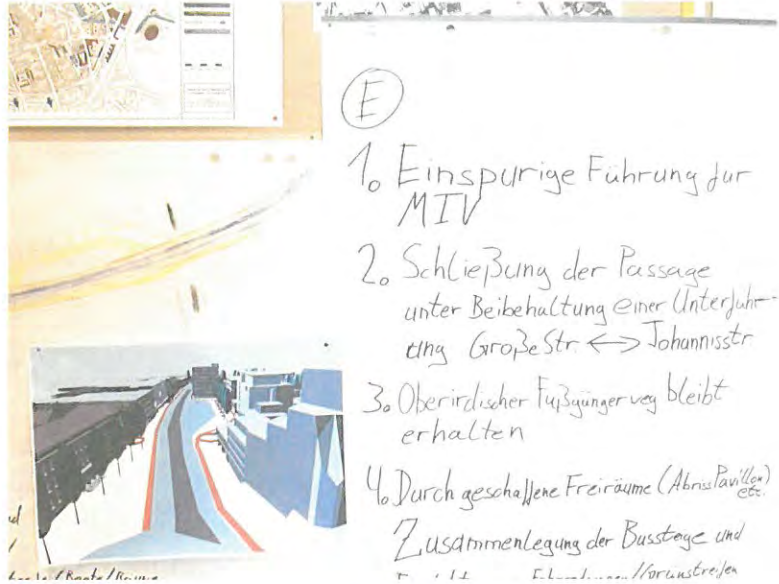 E
1. Einspurige Führung für
MIV
2. Schließung der Passage
unter Beibehaltung einer Unterführ-
ung Große Str. <-> Johannisstr
3. Oberirdischer Fußgängerweg bleibt
erhalten
4. Durch geschaffene Freiräume (Abriss Pavillon)
etc.
Zusammenlegung der Busstege und